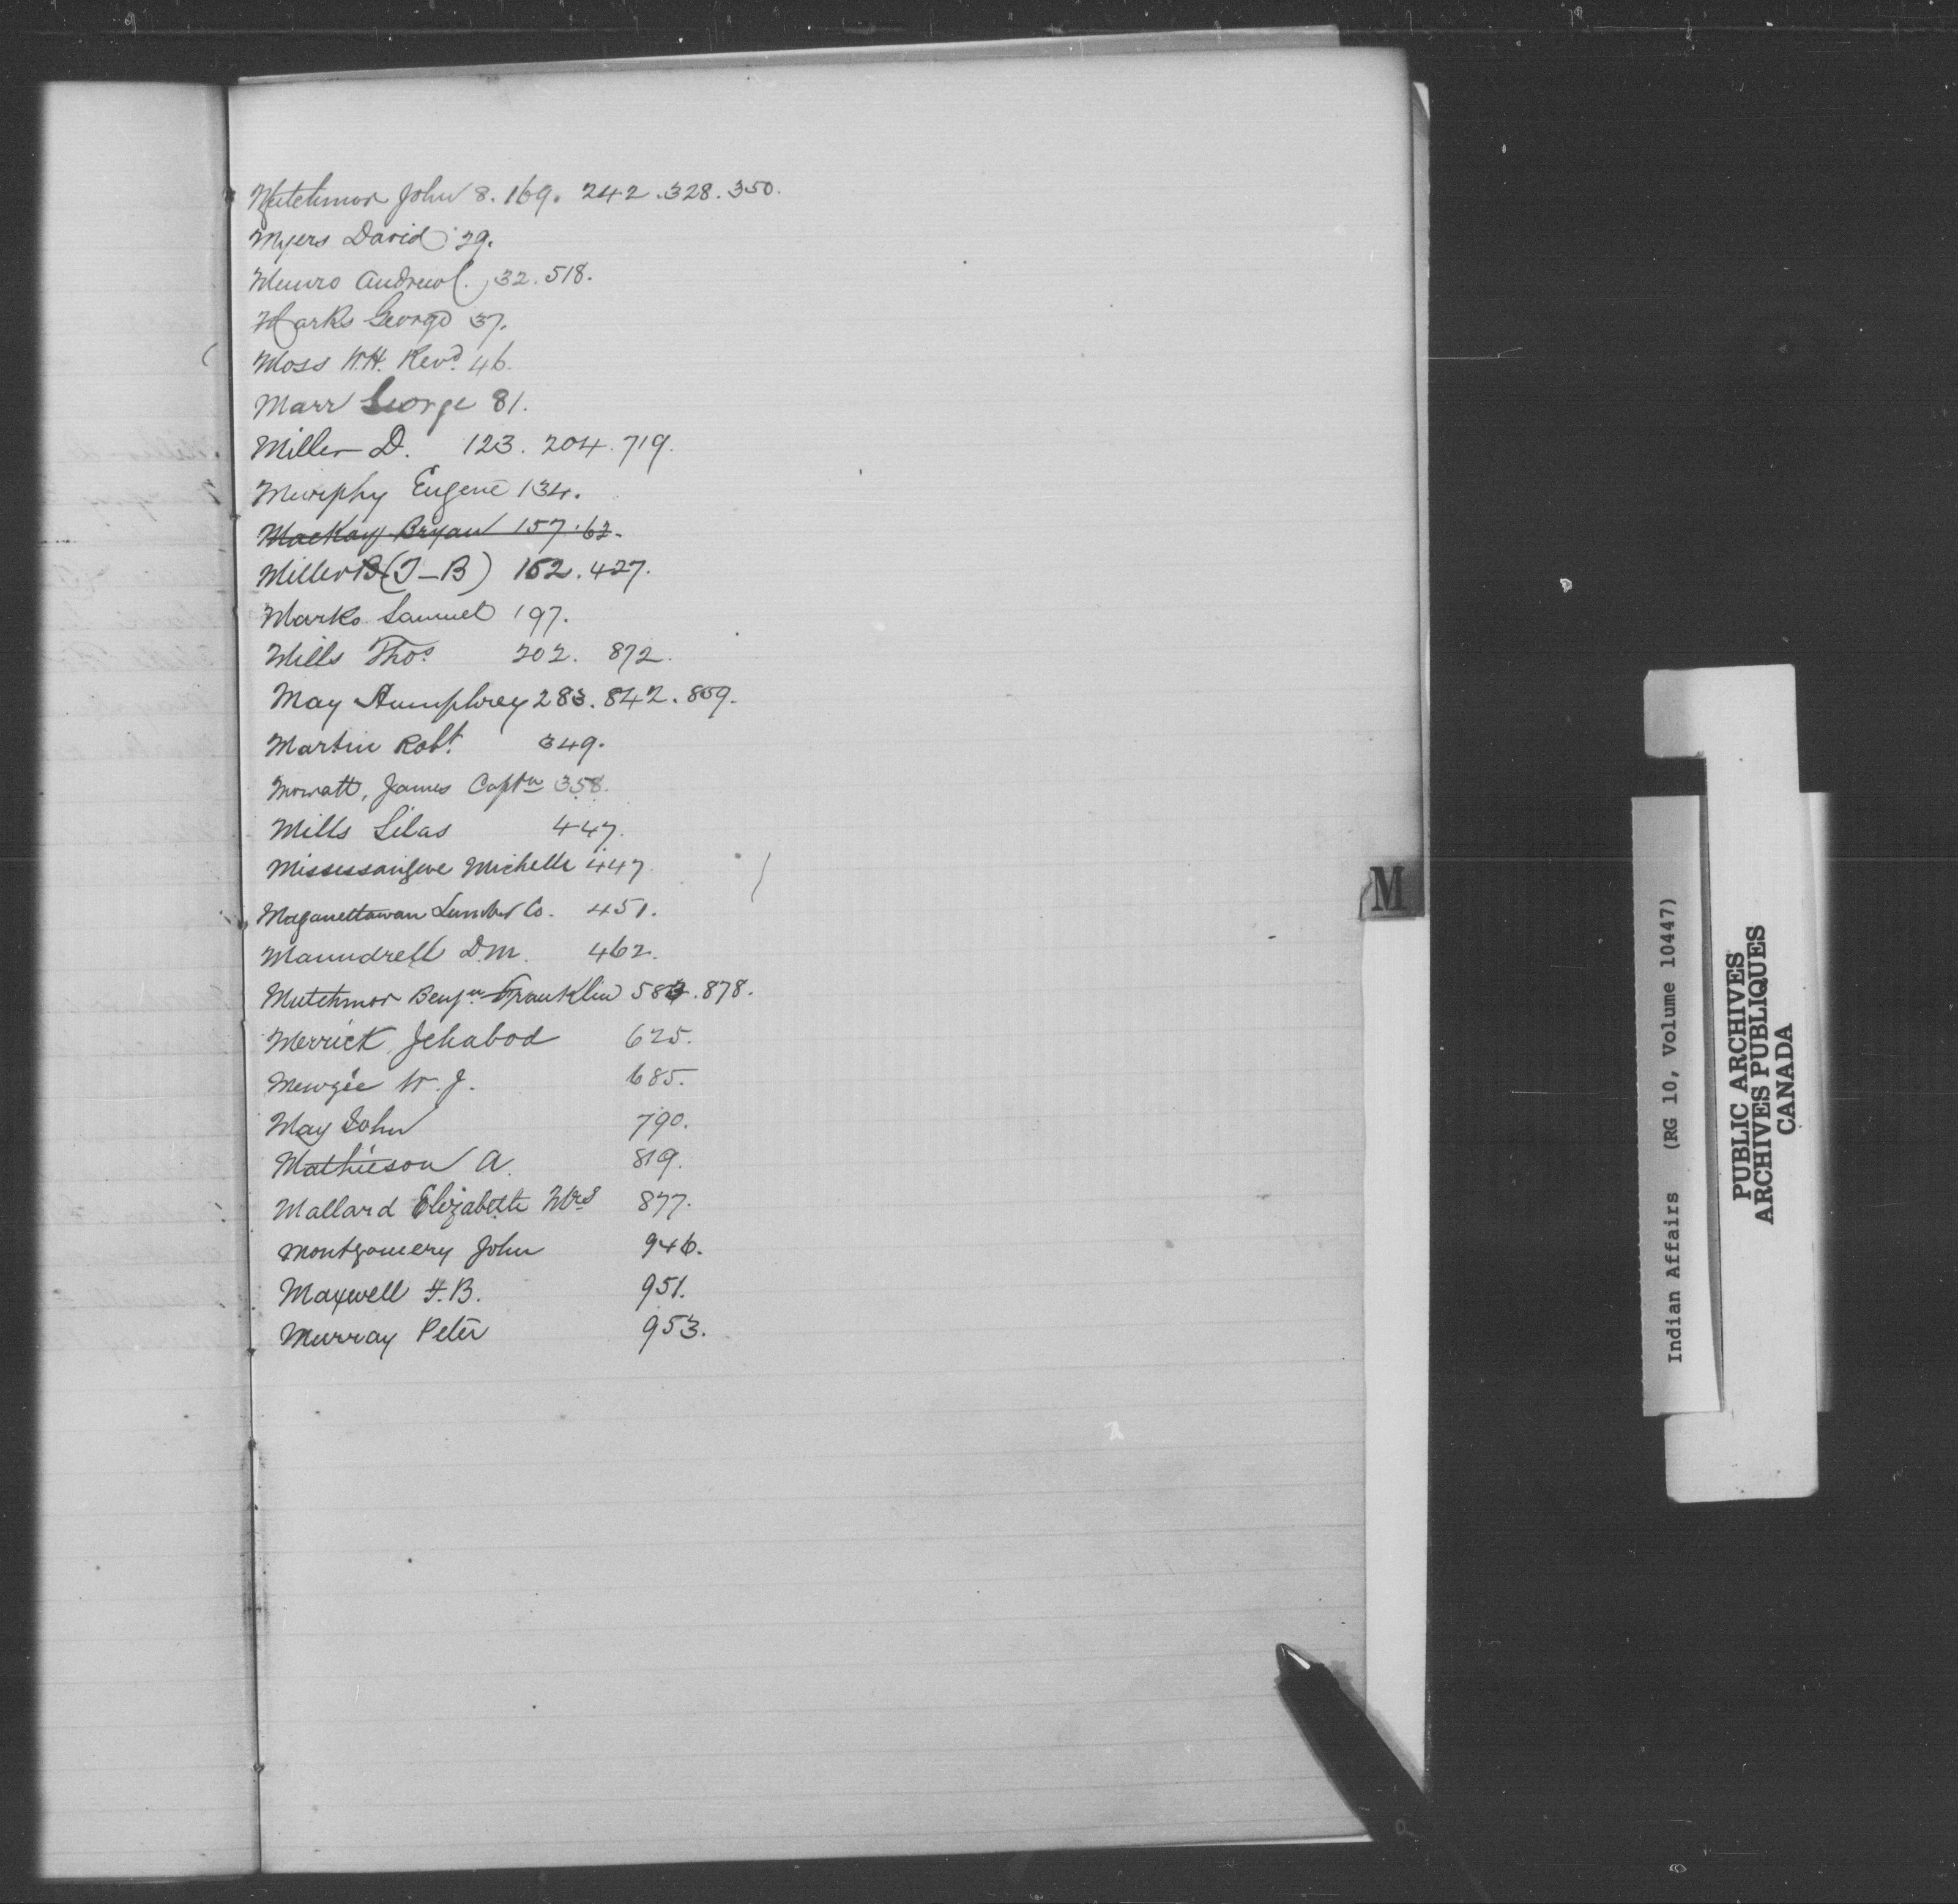 Mutchmor John 8. 169. 242. 328. 350.
Myers David 29.
Munro Andrew C. 32. 518.
Marks George 37.
Moss W.H. Revd. 46.
Marr George 81.
Miller D. 123. 204. 719.
Murphy Eugene 134.
Mackay Bryan 157. 62.
Miller B (J-B) 162. 427.
Marks Samuel 197.
Mills Thos. 202. 872.
May Humphrey 283. 842. 859.
Martin Robt. 349.
Mowatt, James Captn 358.
Mills Silas 447.
Missessaugwe Michelle 447.
Maganettawan Lumber Co. 451.
Maundrell D.M. 462.
Mutchmor Benjn. Franklin 583. 878.
Merrick Jehabod 625.
W. J. 685.
May John 790.
Mathieson A. 819.
Mallard Elizabeth Mrs 877.
Montgomery John 946.
Maxwell F.B. 951.
Murray Peter 953.
M
Indian Affairs (RG 10, Volume 10447)
PUBLIC ARCHIVES
ARCHIVES PUBLIQUES
CANADA